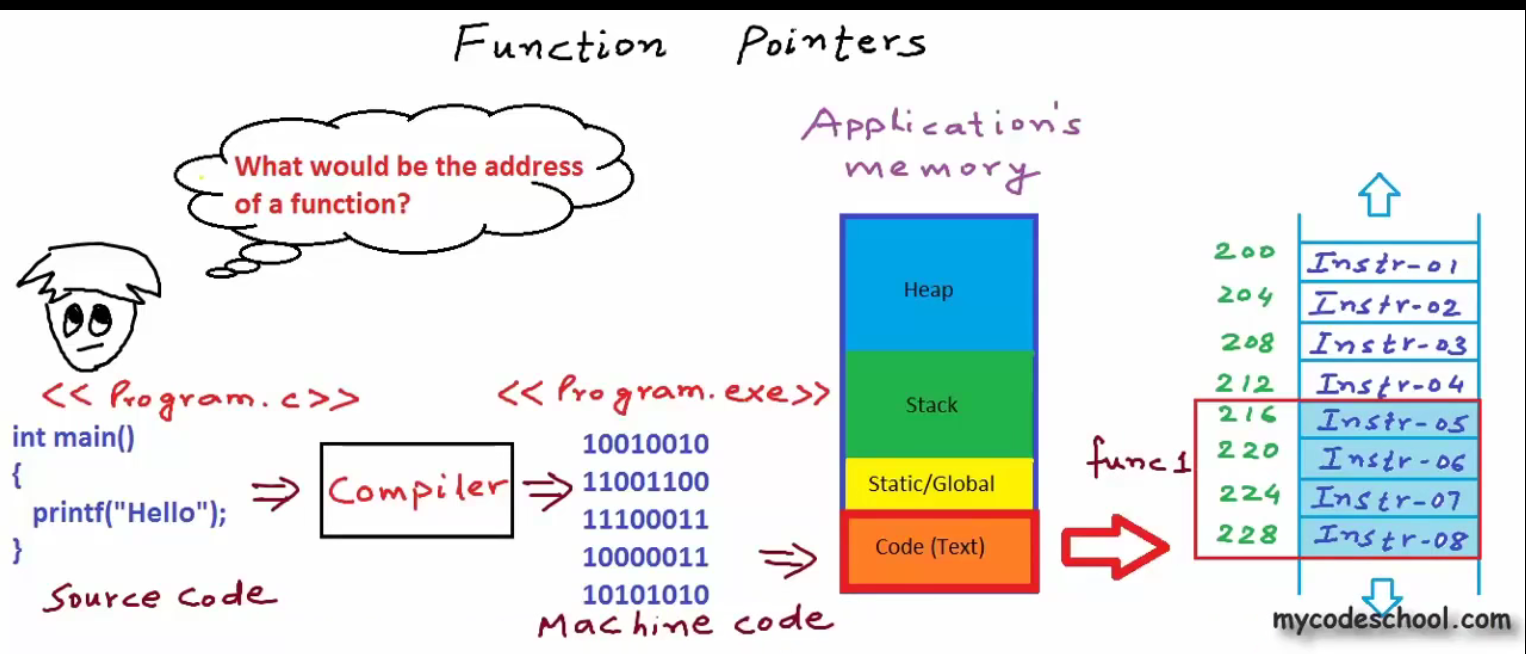 Function Pointers
What would be the address
of a function?
Application's
memory
<< Program.c>>
int main()
{
printf("Hello");
}
Source code
Compiler
<< Program.exe>>
10010010
11001100
11100011
10000011
10101010
Machine code
Heap
Stack
Static/Global
Code (Text)
func1
200 Instr-01
204 Instr-02
208 Instr-03
212 Instr-04
216 Instr-05
220 Instr-06
224 Instr-07
228 Instr-08
mycodeschool.com